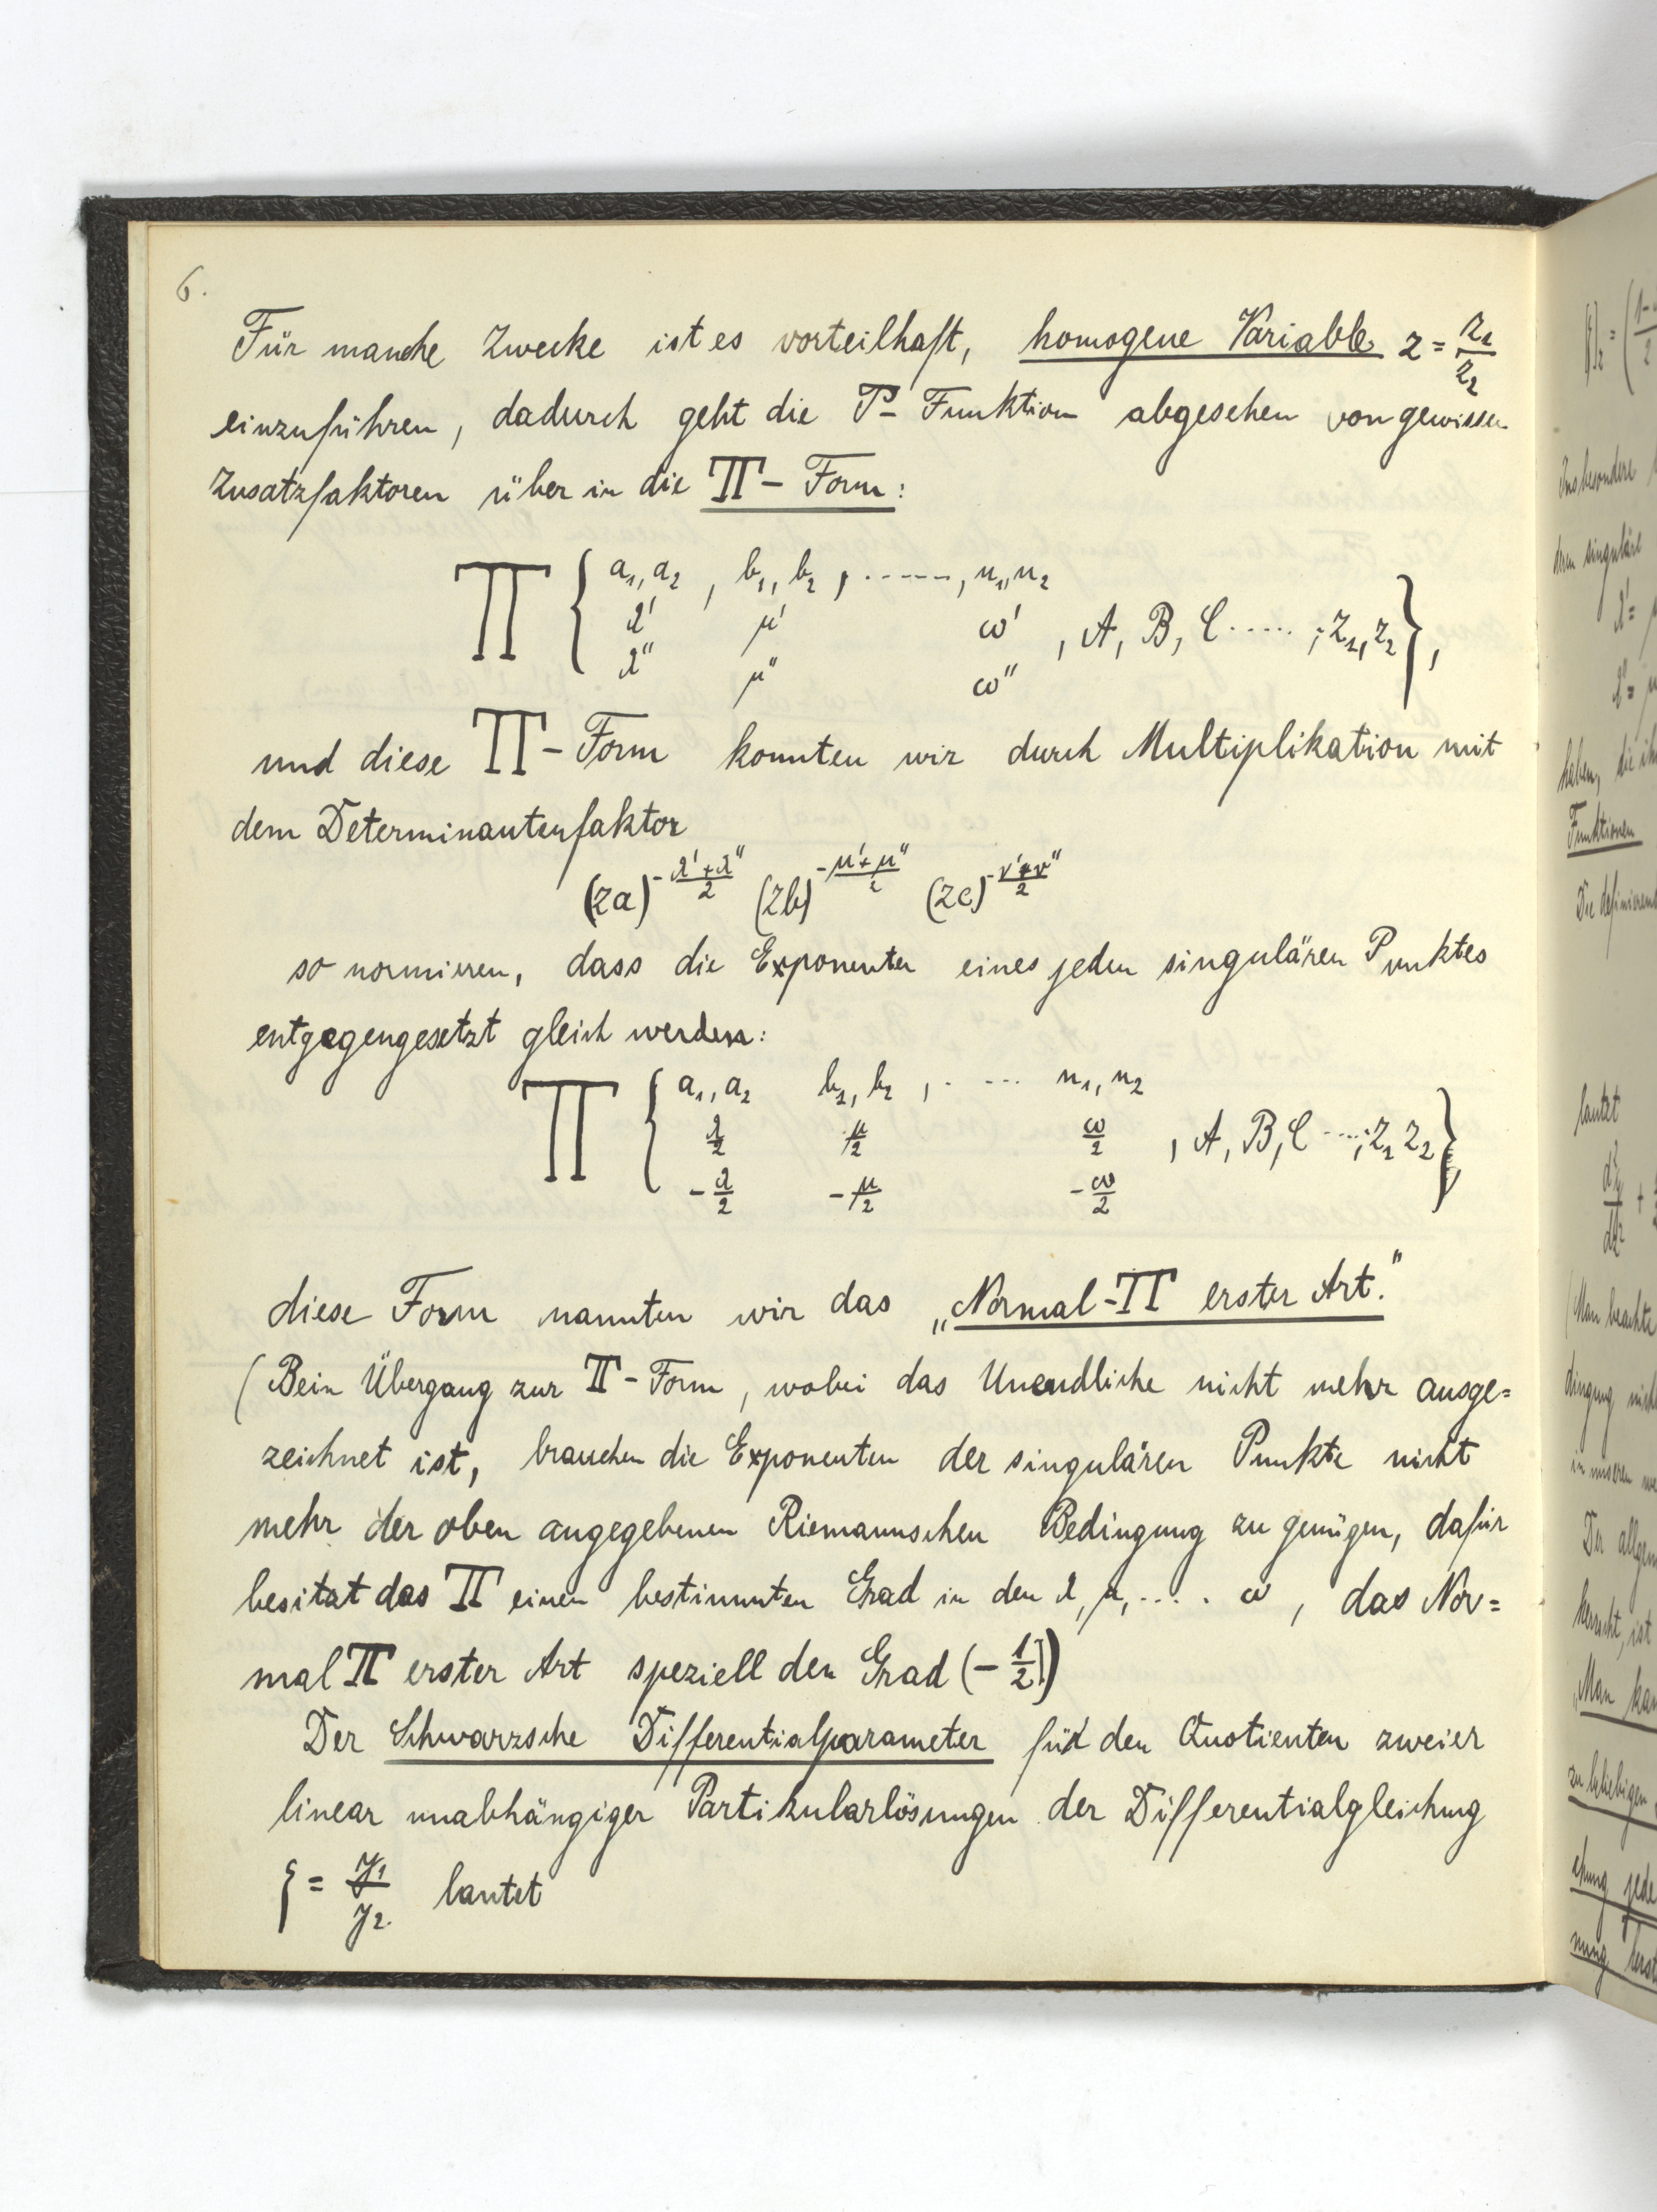 6.
Für manche Zwecke ist es vorteilhaft, homogene Variable z = z₁/z₂
einzuführen, dadurch geht die P-Funktion abgesehen von gewissen
Zusatzfaktoren über in die Π-Form:
Π { a₁,a₂ , b₁,b₂ , ......, n₁,n₂
λ' μ' ω' , A, B, C ..... ; z₁,z₂ },
λ'' μ'' ω''
und diese Π-Form konnten wir durch Multiplikation mit
dem Determinantenfaktor
(za)^{-(λ'+λ'')/2} (zb)^{-(μ'+μ'')/2} (zc)^{-(ν'+ν'')/2}
so normieren, dass die Exponenten eines jeden singulären Punktes
entgegengesetzt gleich werden:
Π { a₁,a₂ b₁,b₂ , .... n₁,n₂
λ/2 μ/2 ω/2 , A, B, C ....; z₁ z₂ }
-λ/2 -μ/2 -ω/2
diese Form nannten wir das „Normal-Π erster Art."
(Beim Übergang zur Π-Form, wobei das Unendliche nicht mehr ausge=
zeichnet ist, brauchen die Exponenten der singulären Punkte nicht
mehr der oben angegebenen Riemannschen Bedingung zu genügen, dafür
besitzt das Π einen bestimmten Grad in den λ, μ, .... ω , das Nor=
mal Π erster Art speziell den Grad (-1/2))
Der Schwarzsche Differentialparameter für den Quotienten zweier
linear unabhängiger Partikularlösungen der Differentialgleichung
ζ = y₁/y₂ lautet
Insbesondere
deren singuläre
λ' =
haben, die
Funktionen
lautet
(Man beachte
dingung
in unseren
Der
„Man
zu beliebigen
chung jede
nung